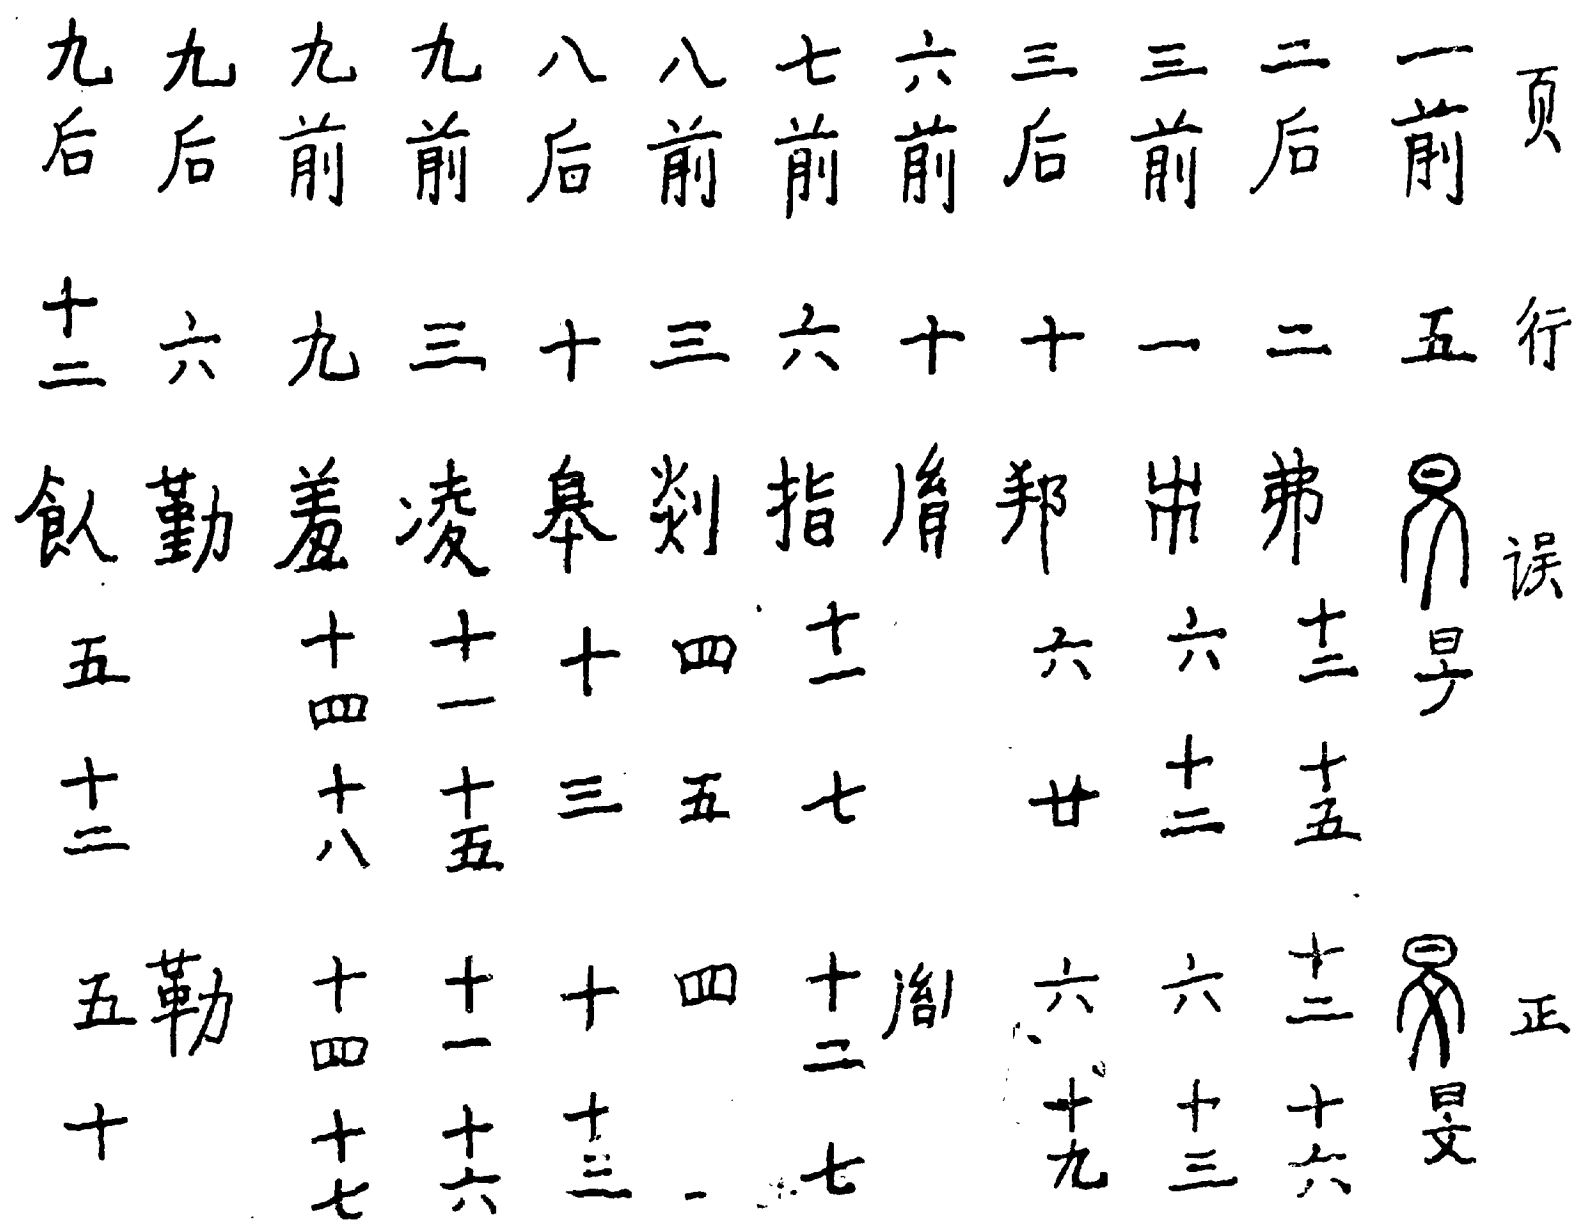 页 行 误 正
一前 五 旱 旻
二后 二 弗 十二 十五 十二 十六
三前 一 六 十二 六 十三
三后 十 邦 六 廿 六 十九
六前 十
七前 六 指 十一 七 十二 七
八前 三 剡 四 五 四 一
八后 十 皋 十 三 十 十三
九前 三 凌 十一 十五 十一 十六
九前 九 羞 十四 十八 十四 十七
九后 六 勤 勒
九后 十二 飲 五 十二 五 十